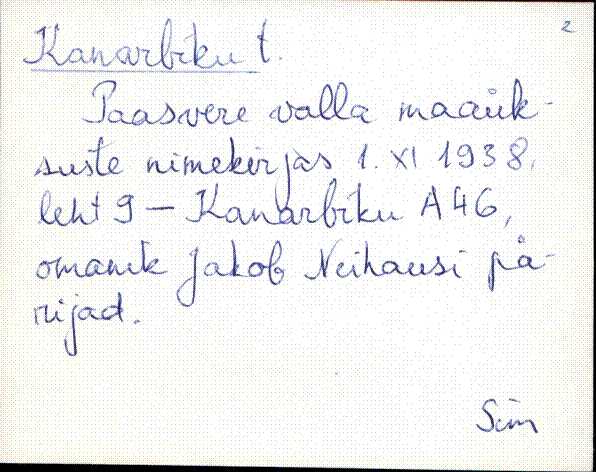 2
Kanarbiku t.
Paasvere valla maaük-
suste nimekirjas 1. XI 1938,
leht 9 – Kanarbiku A 46,
omanik Jakob Neihausi pä-
rijad.
Sim